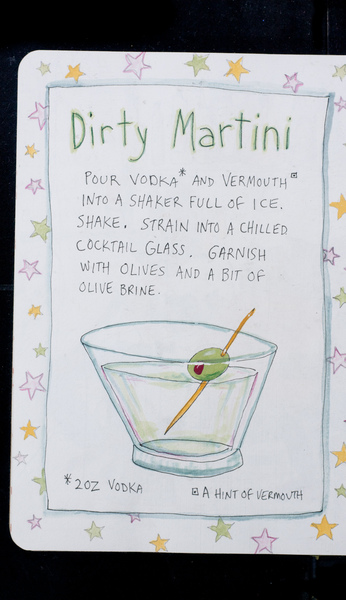 Dirty Martini
POUR VODKA* AND VERMOUTH⊡
INTO A SHAKER FULL OF ICE.
SHAKE. STRAIN INTO A CHILLED
COCKTAIL GLASS. GARNISH
WITH OLIVES AND A BIT OF
OLIVE BRINE.
*2OZ VODKA
⊡ A HINT OF VERMOUTH